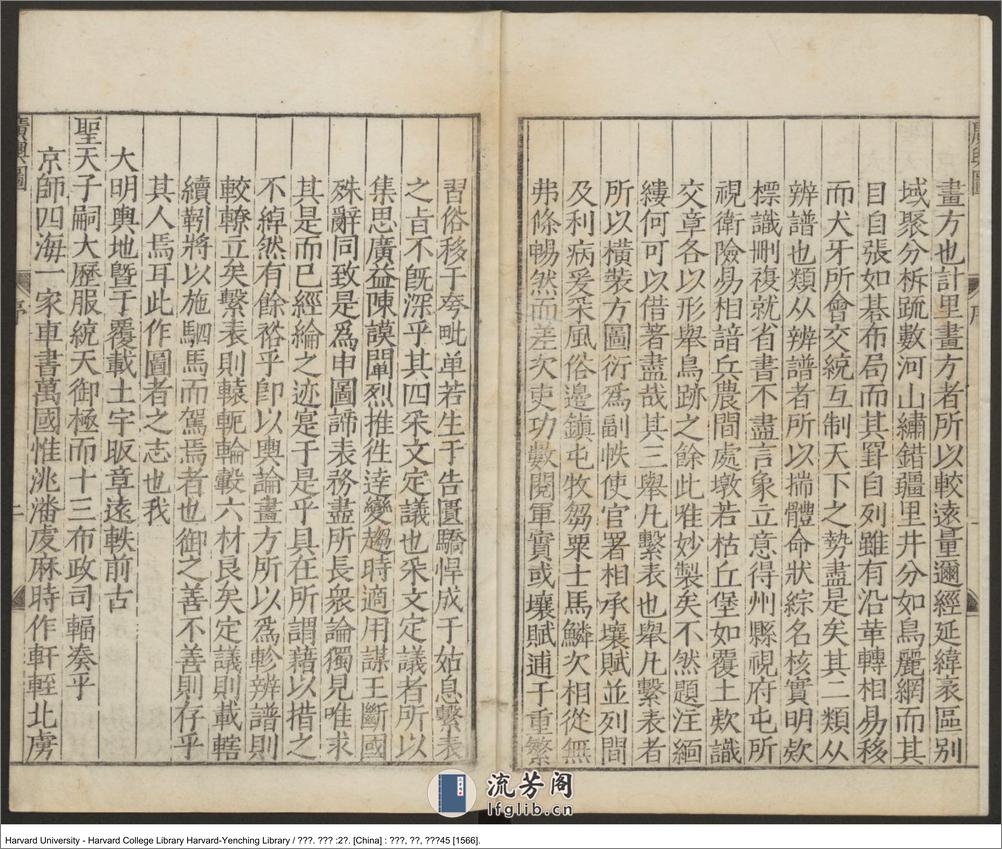 畫方也計里畫方者所以較遠量邇經延緯袤區別
域聚分析疏數河山繡錯疆里井分如鳥麗網而其
目自張如碁布局而其罫自列雖有沿革轉相易移
而犬牙所會交統互制天下之勢盡是矣其二類从
辨譜也類从辨譜者所以揣體命狀綜名核實明欵
標識刪複就省書不盡言象立意得州縣視府屯所
視衛險易相諳兵農間處墩若枯丘堡如覆土欵識
交章各以形舉鳥跡之餘此唯妙製矣不然題注緬
縷何可以借著盡哉其三舉凡繫表也舉凡繫表者
所以橫裝方圖衍爲副帙使官署相承壤賦並列間
及利病爰采風俗邊鎮屯牧芻粟士馬鱗次相從無
弗條暢然而差次吏功數閱軍實或壤賦逋于重繁
習俗移于夸毗单若生于告匱驕悍成于姑息繫表
之旨不旣深乎其四采文定議也采文定議者所以
集思廣益陳謨闡烈推徃逹變趨時適用謀王斷國
殊辭同致是爲申圖諦表務盡所長衆論獨見唯求
其是而已經綸之迹寔于是乎具在所謂藉以措之
不綽然有餘裕乎卽以輿論畫方所以爲軫辨譜則
較轑立矣繫表則轅軛輪轂六材良矣定議則載轄
續靷將以施駟馬而駕焉者也御之善不善則存乎
其人焉耳此作圖者之志也我
大明輿地曁于覆載土宇昄章遠軼前古
聖天子嗣大歷服統天御極而十三布政司輻湊乎
京師四海一家車書萬國惟洮潘虔麻時作軒輊北虜
廣輿圖
序
二
廣輿圖
序
流芳阁
lfglib.cn
Harvard University - Harvard College Library Harvard-Yenching Library / ???. ??? :2?. [China] : ???, ??, ???45 [1566].